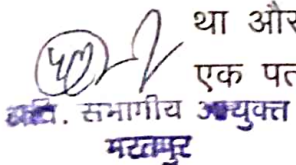 था और
एक पत
अति. सभागीय आयुक्त
भरतपुर